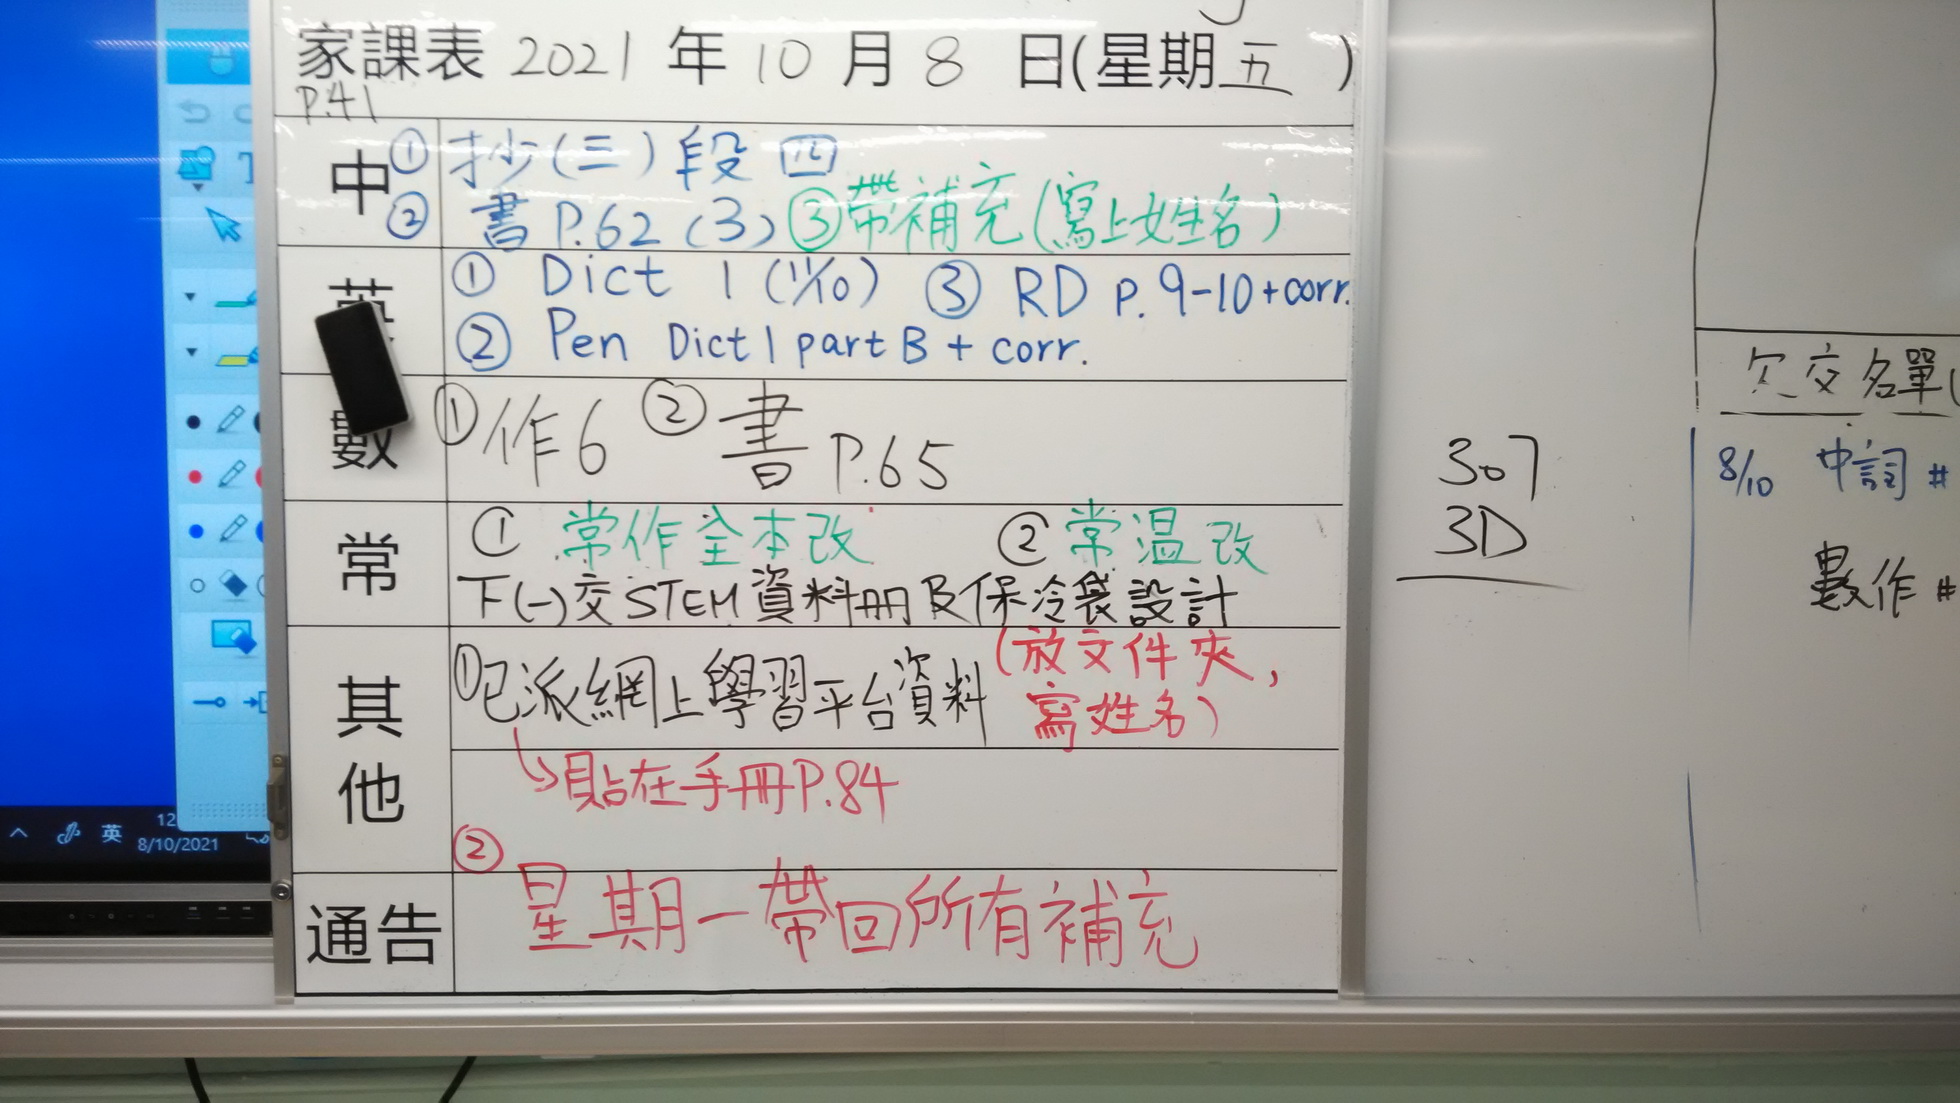 家課表 2021 年 10 月 8 日(星期五 )
P.41
中
① 抄(三)段四
② 書 P.62 (3) ③帶補充(寫上姓名)
① Dict 1 (11/10) ③ RD p. 9-10+corr.
② Pen Dict 1 part B + corr.
數
①作6 ② 書 P.65
常
① 常作全本改 ② 常温改
下(一)交STEM資料冊及保冷袋設計
其他
①已派網上學習平台資料 (放文件夾,
寫姓名)
↳貼在手冊P.84
②
通告
星期一帶回所有補充
307
3D
欠交名單(
8/10 中詞 #
數作 #
英
12
8/10/2021